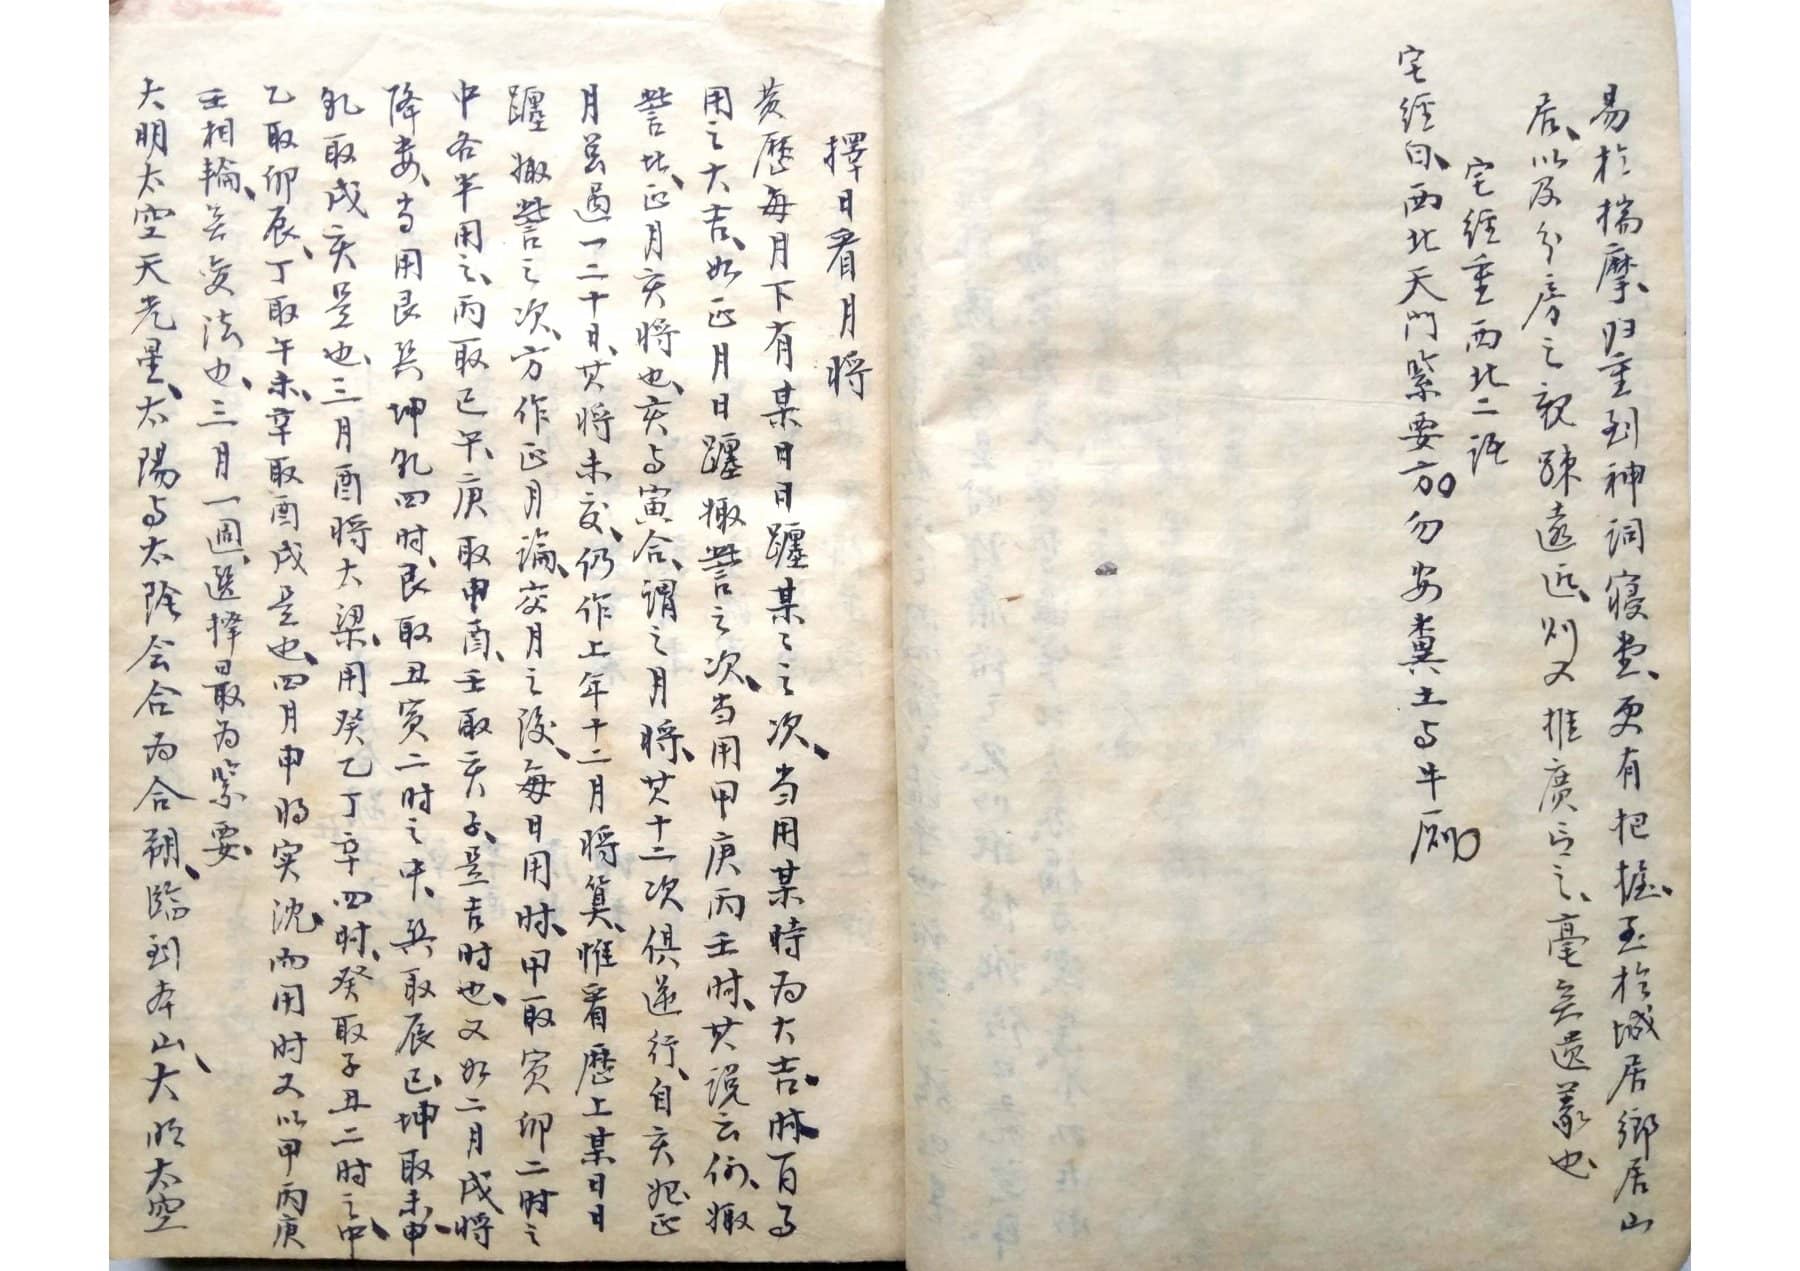 易於揣摩、归重到神祠寢堂、更有把握、至於城居鄉居山
居、以及分房之親疎遠近、则又推廣言之、毫無遺義也
宅經重西北二説
宅經曰、西北天門緊要方。勿安糞土与牛厠。
擇日看月將
黄歷每月下有某日日躔某之次、当用某時为大吉、時百事
用之大吉、如正月日躔娵訾之次、当用甲庚丙壬時、其説云何、娵
訾北、正月亥將也、亥与寅合、謂之月將、其十二次俱逆行、自亥始正
月若過一二十日、其將未交、仍作上年十二月將算、惟看歷上某日日
躔娵訾之次、方作正月論、交月之後、每日用時、甲取寅卯二時之
中各半用之、丙取巳午、庚取申酉、壬取亥子、是吉时也、又如二月戌將
降娄、当用艮巽坤乾四时、艮取丑寅二时之中、巽取辰巳、坤取未申、
乾取戌亥是也、三月酉將大梁、用癸乙丁辛四时、癸取子丑二时之中、
乙取卯辰、丁取午未、辛取酉戌是也、四月申將实沈、而用时又以甲丙庚
壬相輪、無变法也、三月一週、选择最为緊要、
大明太空天光星、太陽与太陰会合为合朔、臨到本山、大照太空